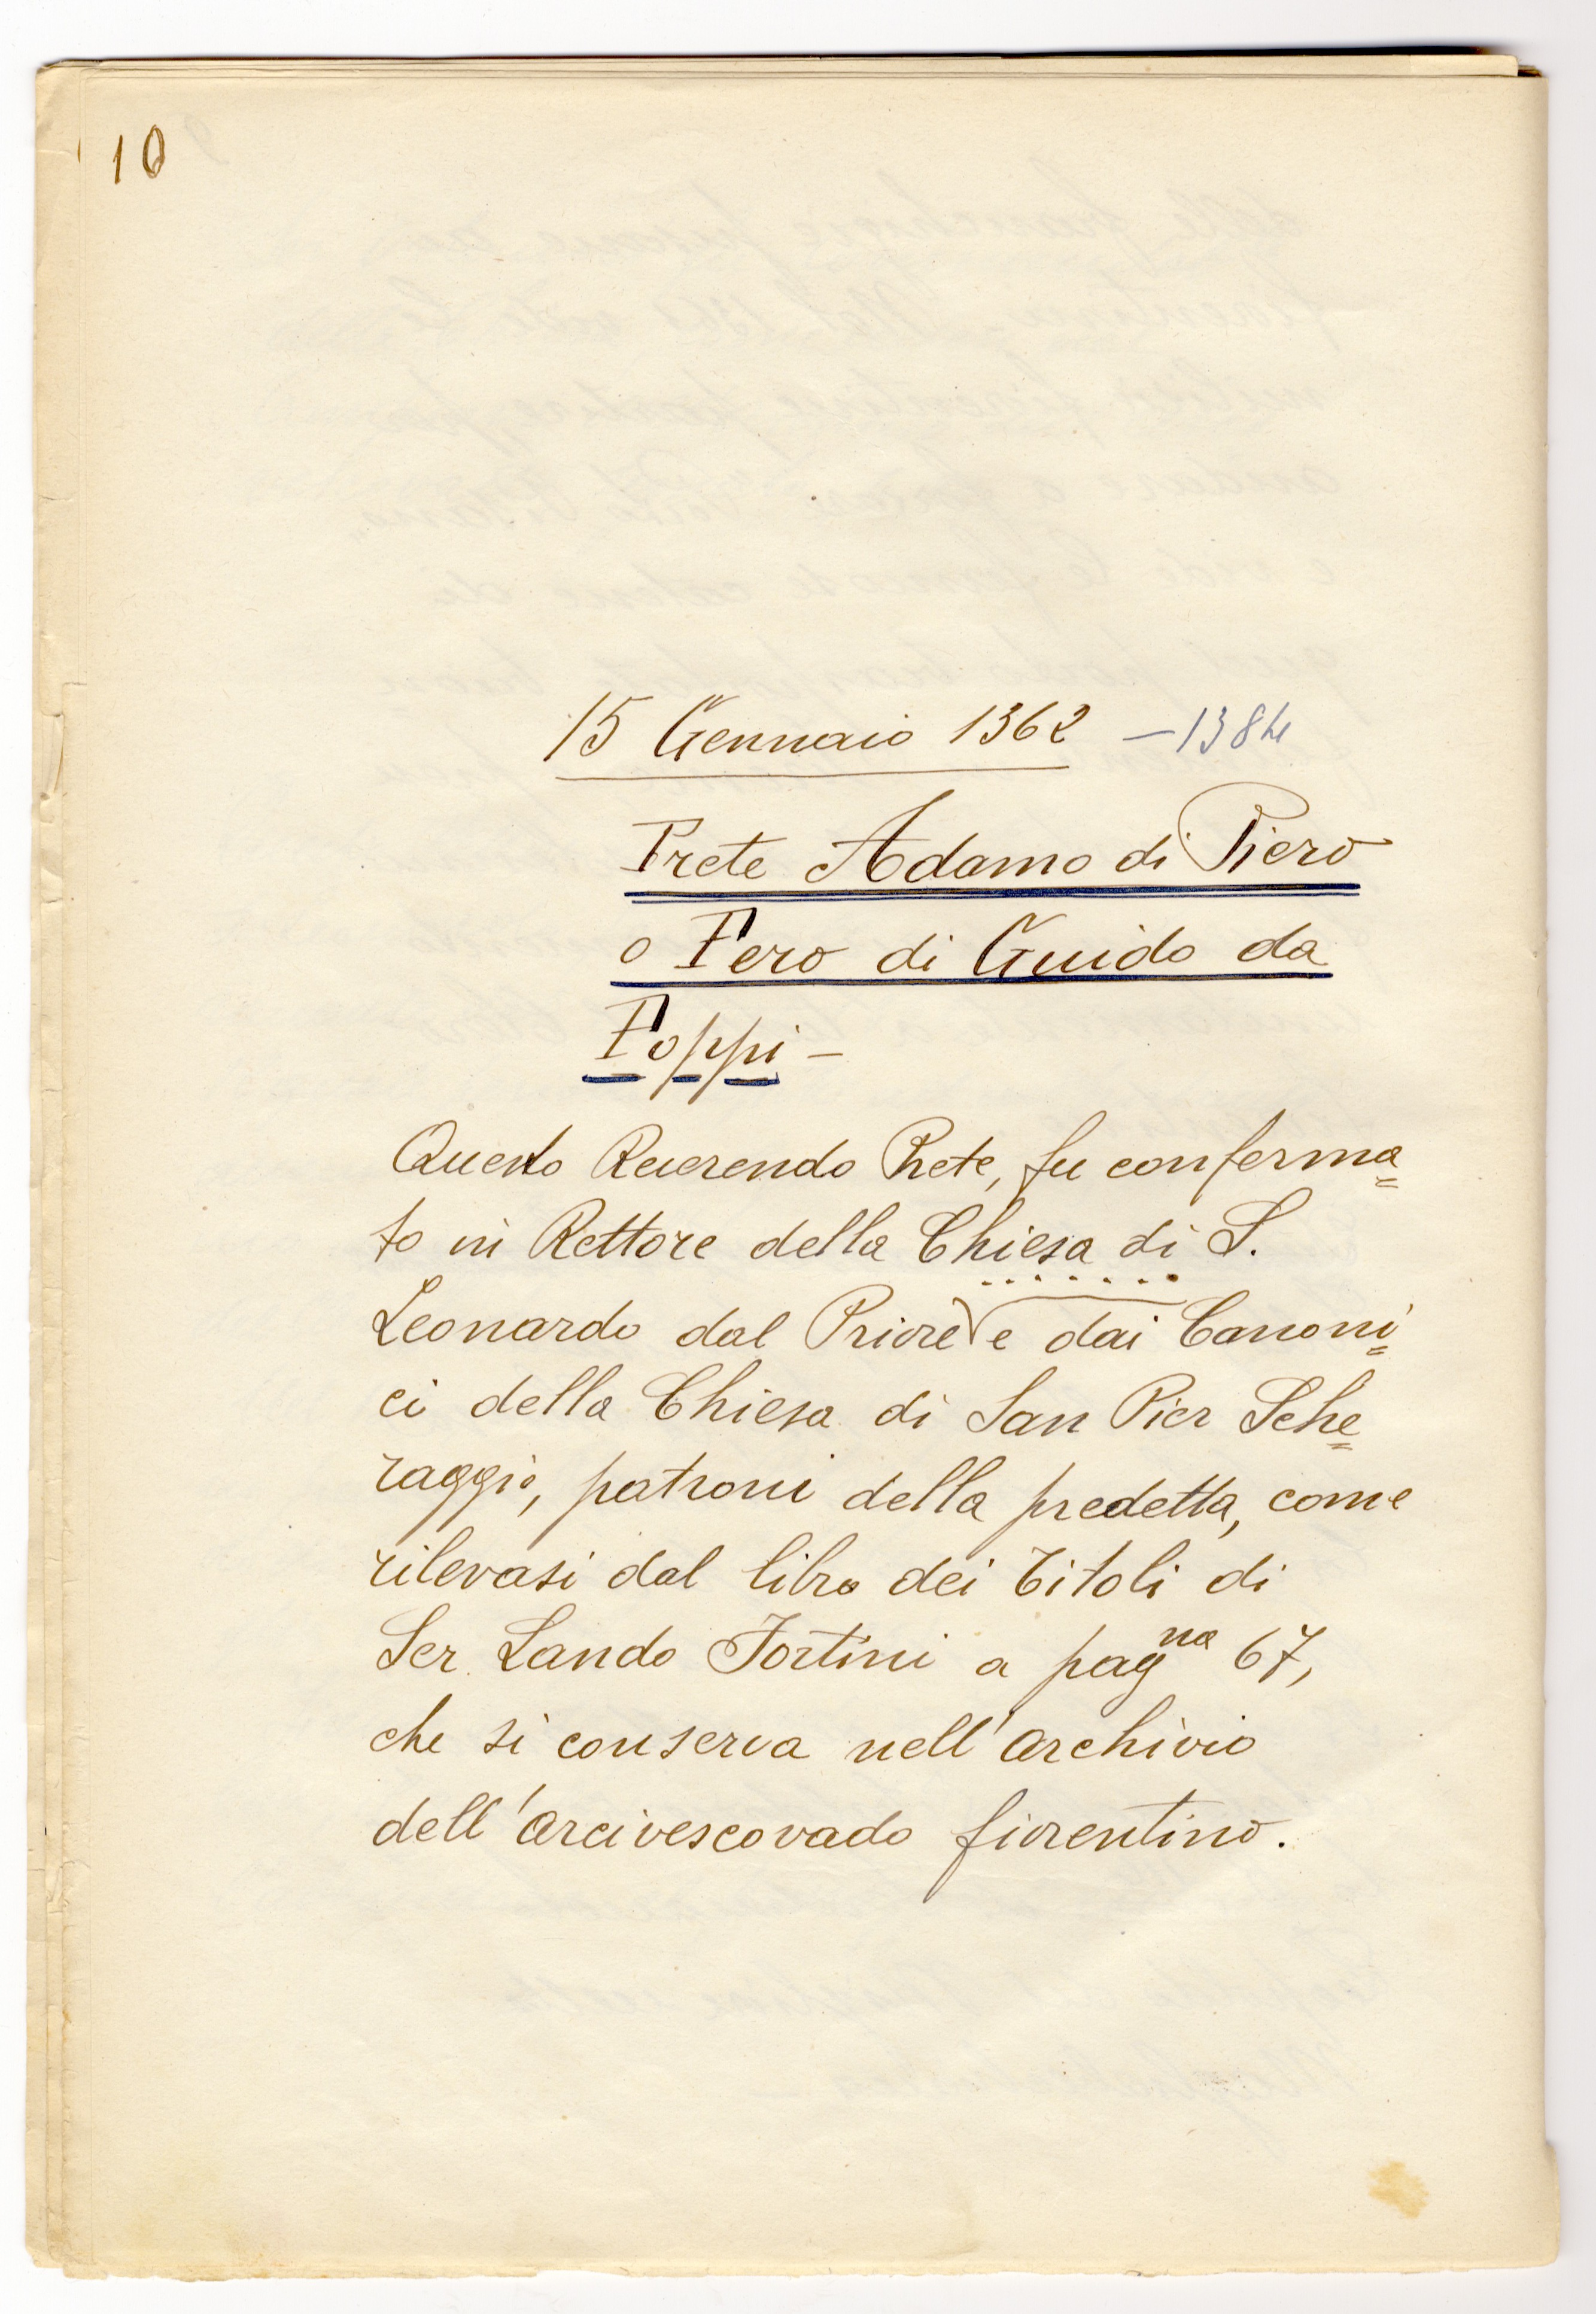 10
15 Gennaio 1362 – 1384
Prete Adamo di Piero
o Pero di Guido da
Poppi –
Questo Reverendo Prete, fu conferma=
to in Rettore della Chiesa di S.
Leonardo dal Priore e dai Canoni=
ci della Chiesa di San Pier Sche=
raggio, patroni della predetta, come
rilevasi dal libro dei Titoli di
Ser Lando Fortini a pagna 67,
che si conserva nell'archivio
dell'arcivescovado fiorentino.